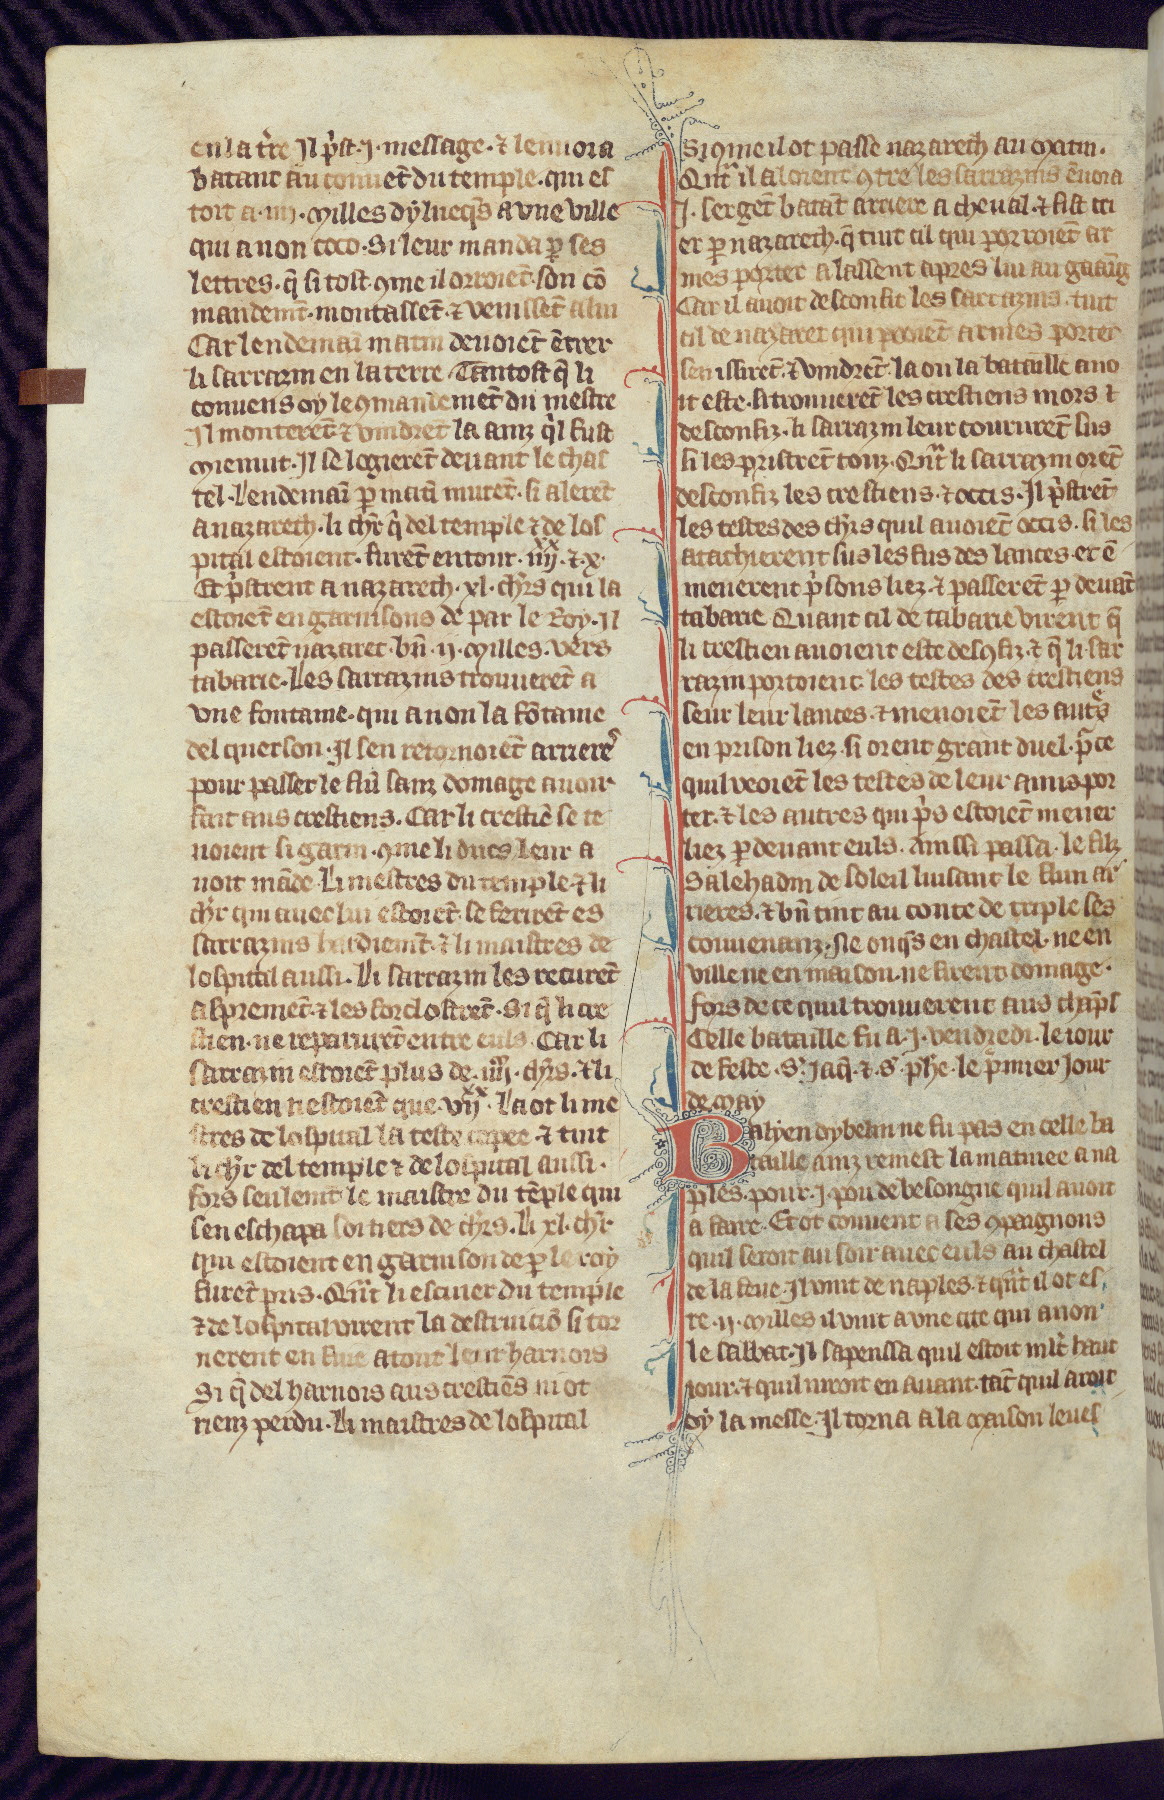 en la tr̃e Il p̃st .J. message . ⁊ lenuoia
batant au couuẽt du temple . qui es
toit a .iiij. milles dylucq̃s a vne ville
qui a non coco . Si leur manda p̱ ses
lettres . q̃ si tost ꝯme il orroiẽt son cõ
mandemẽt . montassẽt . ⁊ venissẽt a lui
Car lendemaĩ matin deuoiẽt ẽtrer
li sarrazin en la terre . Tantost q̃ li
conuens oy le ꝯmandemẽt du mestre
Il monterẽt . ⁊ vindrẽt la ainz q̃l fust
mienuit . Il se logierẽt deuant le chas
tel . Lendemaĩ p̱ matĩ murẽt . si alerẽt
a nazareth . li chr̃ q̃ del temple ⁊ de los
pital estoient . furẽt entour . iiij.xx ⁊ x.
Et p̃strent a nazareth . xl . chr̃s qui la
estoiẽt en garnisons de par le Roy . Il
passerẽt nazaret . bñ .ij. milles . vers
tabarie . Les sarrazins trouuerẽt a
vne fontaine . qui a non la fõtaine
del querson . Il sen retornoiẽt arriere
pour passer le flũ sanz domage auoir
fait aus crestiens . Car li crestiẽ se te
noient si garni . ꝯme li ducs leur a
uoit mãde . Li mestres du temple . ⁊ li
chr̃ qui auec lui estoiẽt . se ferirẽt es
sarrazins baudiemẽt . ⁊ li maistres de
lospital aussi . Li sarrazin les recurẽt
aspremẽt . ⁊ les forclostrẽt . Si q̃ li cre
stien . ne reparurẽt entre euls . Car li
sarrazin estoiẽt plus de .iiij.m chr̃s . ⁊ li
crestien nestoiẽt que .vij.xx . La ot li me
stres de lospital la teste copee . ⁊ tuit
li chr̃ del temple ⁊ de lospital aussi .
fors seulemt le maistre du tẽple qui
sen eschapa soi tiers de chr̃s . Li xl . chr̃
qui estoient en garnison de p̱ le roy
furẽt pris . Qñt li escuier du temple
⁊ de lospital virent la destruiciõ si tor
nerent en fuie atout leur harnois
Si q̃ del harnois aus crestiẽs ni ot
rienz perdu . Li maistres de lospital
Si ꝯme il ot passe nazareth au matin .
Qñt il aloient ꝯtre les sarrazins ẽuoia
J. sergẽt batãt arriere a cheual . ⁊ fist cri
er p̱ nazareth . q̃ tuit cil qui porroiẽt ar
mes porter alassent apres lui au gaãig
Car il auoit desconfit les sarrazins . tuit
cil de nazaret qui pooiẽt armes porter
sen issirẽt . ⁊ vindrẽt la ou la bataille auo
it este . si trouuerẽt les crestiens mors ⁊
desconfiz . li sarrazin leur coururẽt sus
si les pristrẽt touz . Qñt li sarrazin orẽt
desconfiz les crestiens . ⁊ occis . Il p̃strẽt
les testes des chr̃s quil auoiẽt occis . si les
atachierent sus les fus des lances . et ẽ
menerent p̃sons liez . ⁊ passerẽt p̱ deuãt
tabarie . Quant cil de tabarie virent q̃
li crestien auoient este desꝯfiz . ⁊ q̃ li sar
razin portoient les testes des crestiens
seur leur lances . ⁊ menoiẽt les autˢs
en prison liez . si orent grant duel . p̃ce
quil veoiẽt les testes de leur amis por
ter . ⁊ les autres qui p̃s estoiẽt mener
liez p̱ deuant euls . Ainssi passa . le filz
Salehadin de soleil luisant le flun ar
rieres . ⁊ bñ tint au conte de triple ses
conuenanz . Ne onq̃s en chastel . ne en
ville ne en maison . ne firent domage .
fors de ce quil trouuerent aus chãps
Celle bataille fu a .J. vendredi . le iour
de feste . S. Jaq̃ . ⁊ . S . phe . le p̃mier Jour
de may
Balyen dybelin ne fu pas en celle ba
taille ainz remest la matinee a na
ples . pour .J. pou de besongne quil auoit
a faire . Et ot conuent a ses ꝯpaignons
quil seroit au soir auec euls au chastel
de la feue . Il vint de naples . ⁊ qñt il ot es
te .ij. milles il vint a vne cite qui a non
le sabbat . Il sapenssa quil estoit mlt̃ haut
iour . ⁊ quil niroit en auant . tãt quil aroit
oy la messe . Il torna a la maison leues